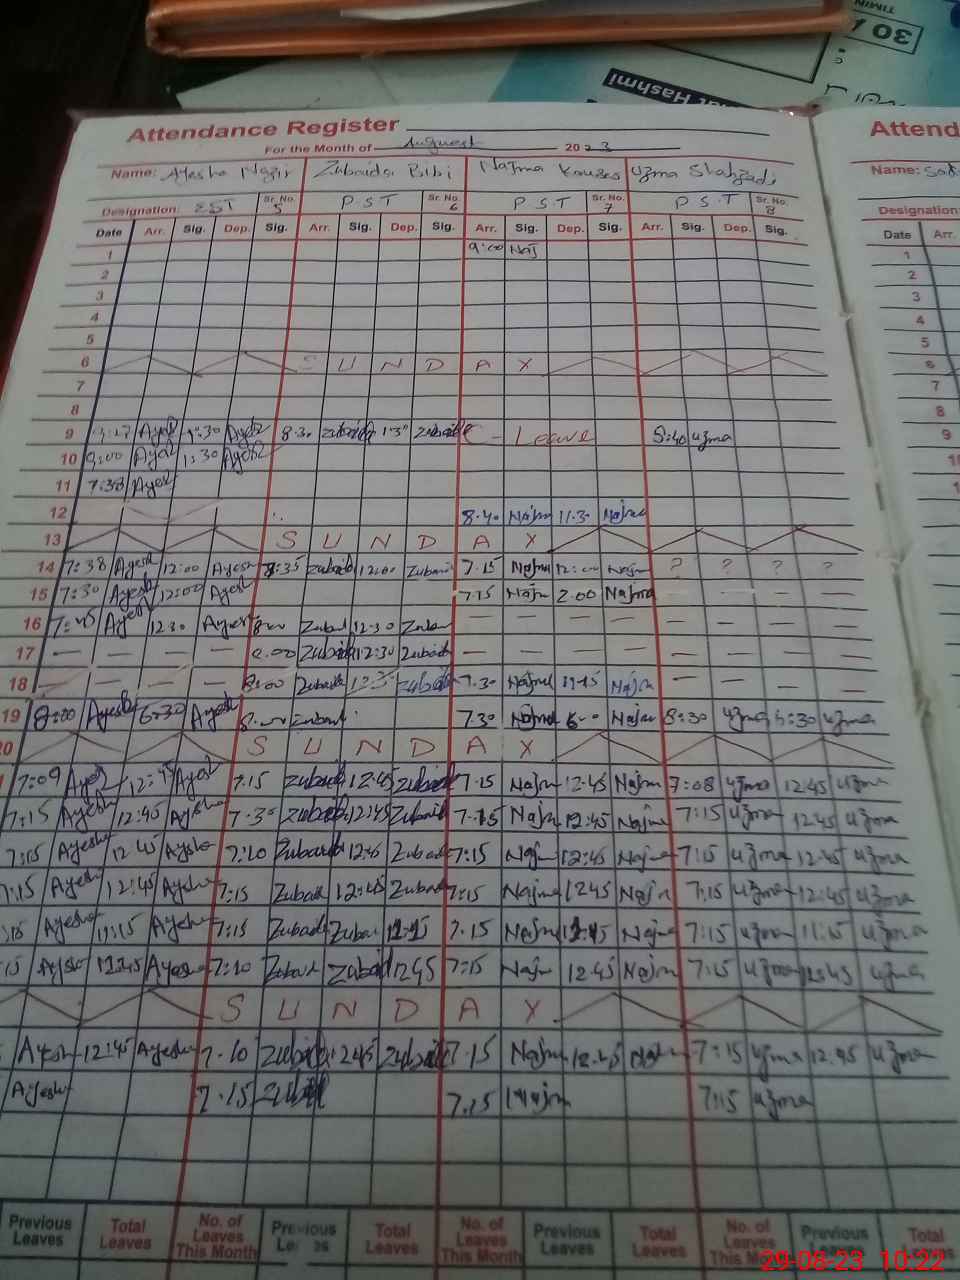 30 A
TIMIN
Hashmi
Attendance Register
Attend
For the Month of August 2023
Name: Ayesha Nazir Zubaida Bibi Najma Kousar Uzma Shahzadi
Name:
Designation: EST Sr. No. 5 PST Sr. No. 6 PST Sr. No. 7 P.S.T Sr. No. 8
Designation:
Date Arr. Sig. Dep. Sig. Arr. Sig. Dep. Sig. Arr. Sig. Dep. Sig. Arr. Sig. Dep. Sig.
Date Arr.
1 9:00 Naj
1
2
2
3
3
4
4
5
5
6 S U N D A Y
6
7
7
8
8
9 Ayesh 1:30 Ayesh 8:30 Zubaida 1:3 Zubaida C - Leave 5:40 uzma
9
10 9:00 Ayesh 1:30 Ayesh
11 7:38 Ayesh
12 8.40 Najma 11.30 Najma
13 S U N D A Y
14 7:38 Ayesh 12:00 Ayesh 8:35 Zubaid 12:00 Zubaid 7.15 Najma 12:00 Najm ? ? ? ?
15 7:30 Ayesha 12:00 Ayesh 7.15 Najm 2.00 Najma — — — —
16 7:45 Ayesh 12:30 Ayesh 8:00 Zubad 12:30 Zubad — — — — — — — —
17 — — — — 8.00 Zubaida 12:30 Zubaida — — — — — — — —
18 — — — — 8:00 Zubaida 12:3 Zubaida 7.30 Najma 11.15 Najm — — — —
19 8:00 Ayesha 6:30 Ayesh 8:00 Zubaid 7.30 Najma 6-0 Najm 8:30 uzma 6:30 uzma
20 S U N D A Y
7:09 Ayesh 12:45 Ayesh 7.15 Zubaid 12:45 Zubaid 7.15 Najm 12.45 Najma 7:08 uzma 12.45 uzma
7:15 Ayesha 12:45 Ayesha 7.30 Zubaid 12:45 Zubaid 7.15 Najm 12:45 Najma 7:15 uzma 12.45 uzma
7:15 Ayesha 12:45 Ayesha 7:10 Zubaid 12:45 Zubad 7:15 Najm 12:45 Najma 7:15 uzma 12:45 uzma
7:15 Ayesha 12:45 Ayesha 7:15 Zubad 12:45 Zubad 7:15 Najma 1245 Najm 7:15 uzma 12:45 uzma
:15 Ayesha 11:15 Ayesha 7:15 Zubad Zubai 7.15 Najma Najma 7:15 uzma 11:15 uzma
15 Ayesha 12:45 Ayesha 7:10 Zubad Zubad 1245 7:15 Najm 12.45 Najm 7:15 uzma 12:45 uzma
S U N D A Y
Ayesh 12:45 Ayesha 7.10 Zubaid 1245 Zubaid 7.15 Najm 12.45 Najm 7:15 uzma 12.45 uzma
Ayesha 7.15 Zubaid 7.15 Najm 7:15 uzma
Previous Leaves Total Leaves No. of Leaves This Month Previous Total Leaves No. of Leaves This Month Previous Leaves Total Leaves No. of Leaves This Month Previous Leaves Total Leaves
29-08-23 10:22